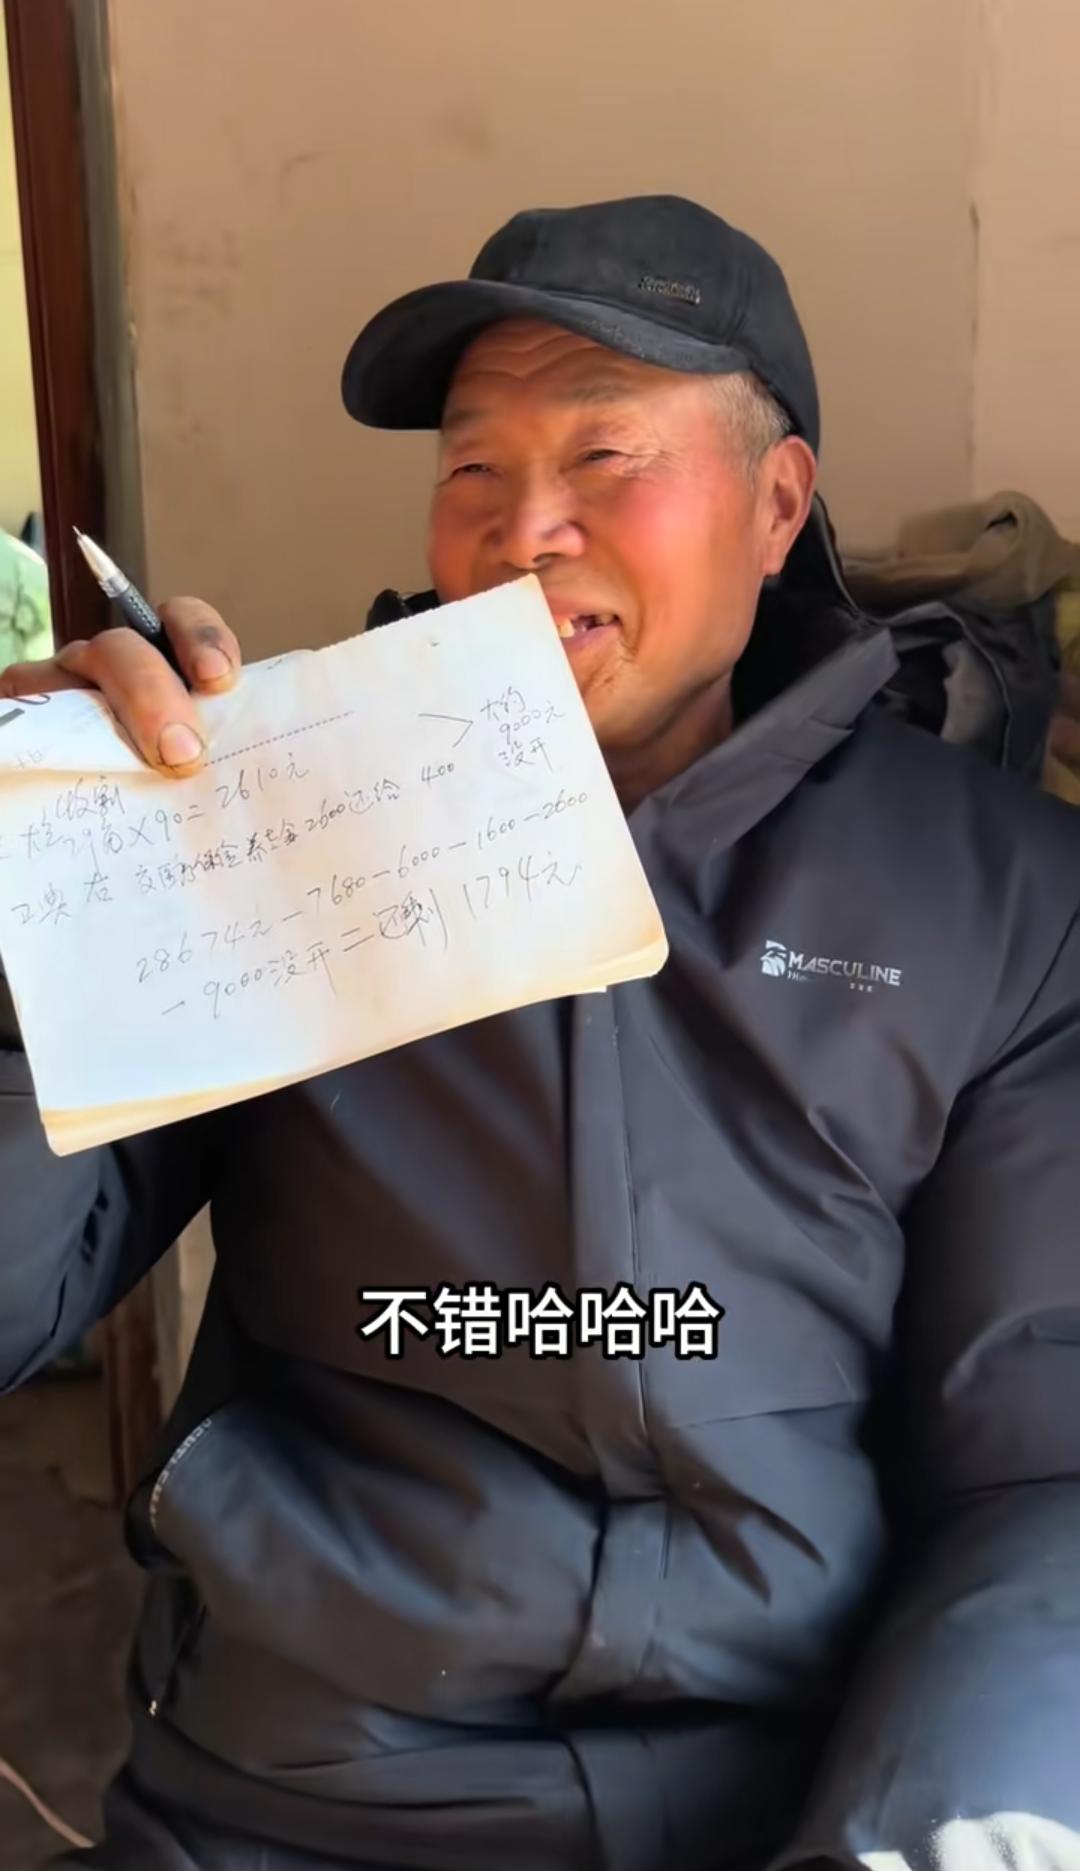 大约
9000元
没开
收割
29亩×90=2610元
交医疗保险养老金2600还给 400
28674元-7680-6000-1600-2600
-9000没开=还剩1794元
MASCULINE
不错哈哈哈